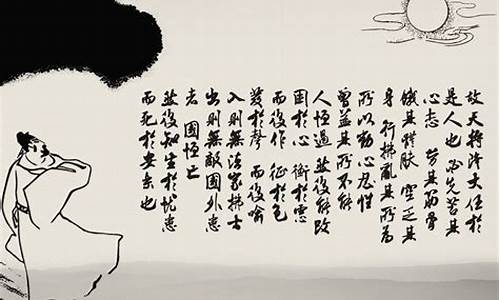 故天將降大任於
是人也 必先苦其
心志 勞其筋骨
餓其體膚 空乏其
身 行拂亂其所為
所以動心忍性
曾益其所不能
人恒過 然後能改
困於心 衡於慮
而後作 征於色
發於聲 而後喻
入則無法家拂士
出則無敵國外患
者 國恒亡
然後知生於憂患
而死於安樂也